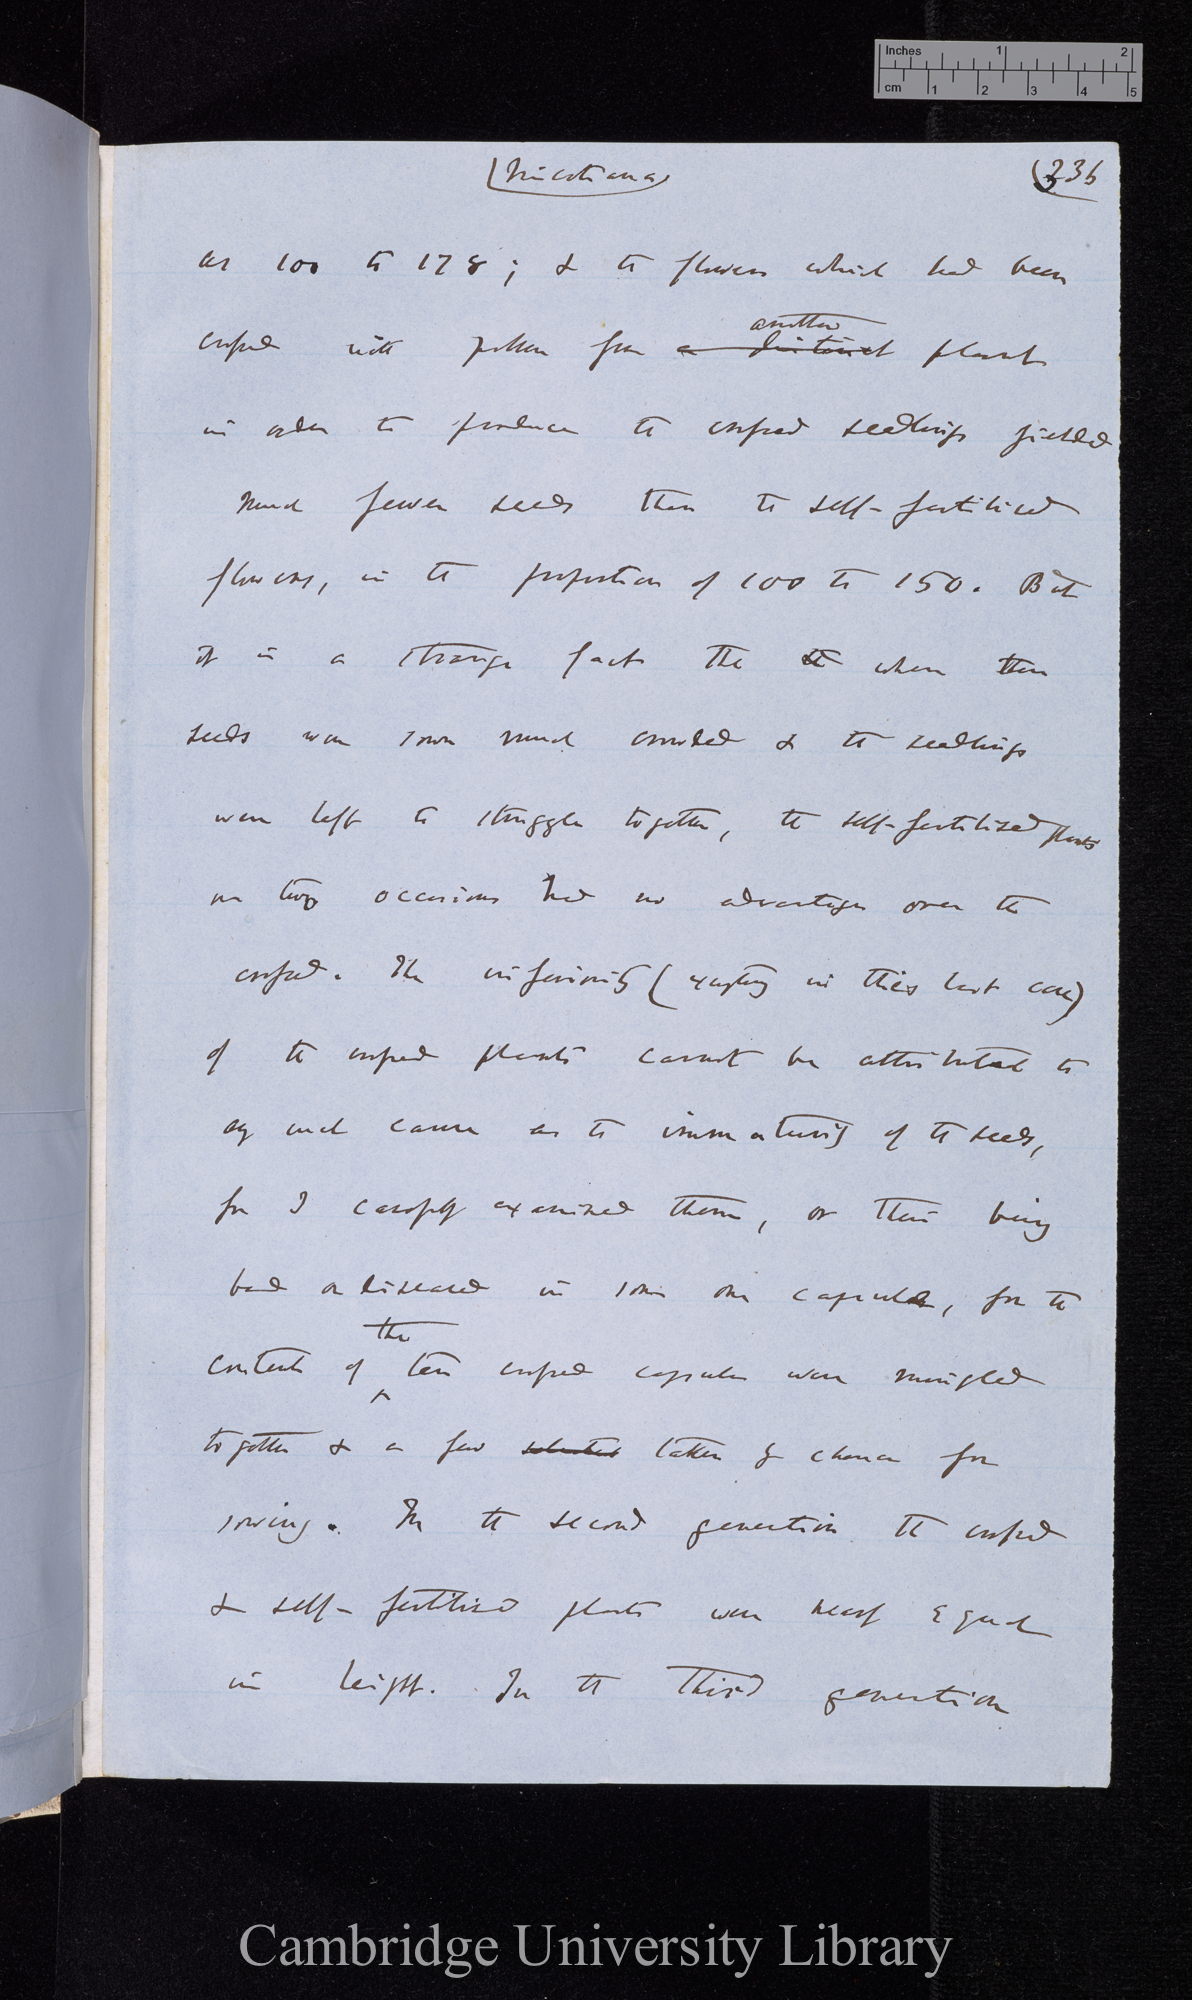 Inches 1 2
cm 1 2 3 4 5
(Nicotiana) (336
as 100 to 178; & the flowers which had been
another
crossed with pollen from a distinct plant
in order to produce the crossed seedlings yielded
much fewer seeds than the self-fertilised
flowers, in the proportion of 100 to 150. But
it is a strange fact the when these
seeds were sown much crowded & the seedlings
were left to struggle together, the self-fertilised plants
on two occasions had no advantage over the
crossed. The inferiority (excepting in this last case)
of the crossed plants cannot be attributed to
any such cause as the immaturity of the seeds,
for I carefully examined them, or their being
bad or diseased in some one capsule, for the
the
contents of ten crossed capsules were mingled
together & a few selected taken by chance for
sowing. In the second generation the crossed
& self-fertilised plants were nearly equal
in height. In the third generation
Cambridge University Library